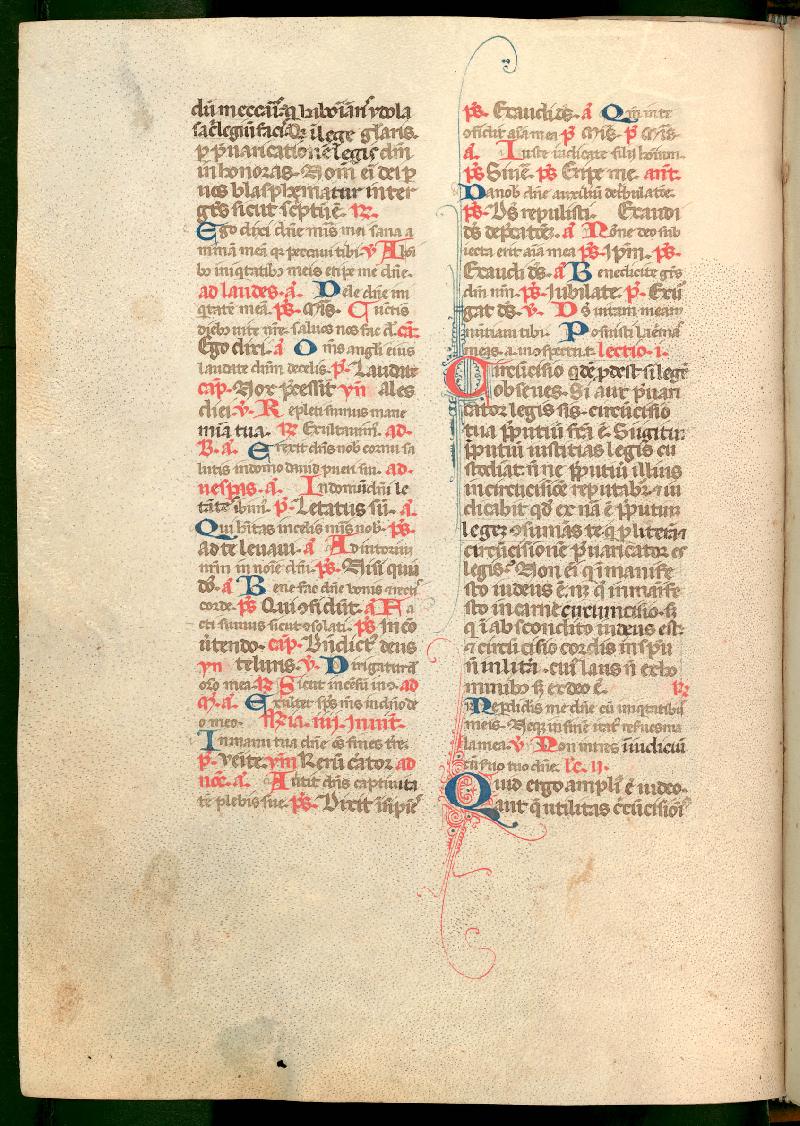 dū meccaūr. q̄ hōīaris ydola
sac̄legiū facis. Qr i lege glaris.
p p̄uaricationē legis dm̄
inhonoras. Nom̄ ei dei p
uos blasphematur inter
gēs sicut sc̄ptū ē. R̄.
Ego dixi dn̄e mis̄ mei sana a
nimā meā qr peccaui tibi. V Ab oī
bꝰ iniqtatibꝰ meis eripe me dn̄e.
ad laudes. a. Dele dn̄e ini
qtatē meā. ps. Mis̄. Cūctis
diebꝰ uite nr̄e. saluos nos fac d. ca.
Ego dixi. a Om̄s angli eius
laudate dn̄m decelis. p. Laudate
cap. Nox p̄cessit yn̄ ales
diei. v. Repleti sumus mane
mīa tua. R̄ Exultauim. ad.
B. a. Erexit dn̄s nob cornu sa
lutis indomo dauid pueri sui. ad.
uesp̄as. a. Indomū dn̄i le
tātes ibim. p. Letatus sū. a.
Qui h̄itas incelis mis̄ nob. ps.
ad te leuaui. a Adiutoriū
nrm̄ in noīe dn̄i. ps. Nisi quia
dō. a Bene fac dn̄e bonis ⁊ rectis
corde. ps Qui ꝯfidūt. a Fa
cti sumus sicut ꝯsolati. ps In cō
ūtendo. cap. Bn̄dictꝰ deus
yn̄ telluris. v. Dirigatur
orō mea. R̄ Sicut incēsū in ꝯ. ad
M. a. Exultet sp̄s m̄s indn̄o de
o meo. Feria. iiij. Inuit.
In manu tua dn̄e oēs fines tre.
p. Venite. yn̄ Rerū c̄ator ad
noc̄. a. Auertit dn̄s captiuita
tē plebis sue. ps. Dixit īsipiēs
ps. Exaudi ds. a Qm̄ in te
ꝯfidit aīa mea p Mis̄. p Mis̄.
a. Iuste iudicate filij hoīum.
ps Si uē. ps Eripe me. ant.
Da nob dn̄e auxiliū de tbulatōe.
ps. Ds repulisti. Exaudi
ds dep̄catōeꝫ. a Nōne deo sub
iecta erit aīa mea ps. Ipm̄. ps.
Exaudi ds. a Benedicite gēs
dm̄ nr̄m. ps. Iubilate. p. Exur
gat ds. v. Ds uitam meam
nuntiaui tibi. Posuisti lacimas
meas. a. in ꝯspectu t. lectio. i.
Circūcisio qdē p̄dest si legē
obserues. Si aut p̄uari
cator legis sis. circūcisio
tua p̄putiū fc̄a ē. Si igitur
p̄putiū iustitias legis cu
stodiat. n̄ne p̄putiū illius
in circūcisiōe reputabiꝫ. ⁊ iu
dicabit qd ex nā ē p̄putiū
legeꝫ ꝯsumās te q p lit̄am ⁊
circūcisione p̄uaricator es
legis. Non ei q in manife
sto iudeus ē. nꝫ q in maife
sto in carne circumcisio. sꝫ
q i absconditō iudeus est.
⁊ circūcisio cordis in sp̄u
n̄ in lit̄a. cuiꝰ laus n̄ ex ho
minibꝰ sꝫ ex deo ē. R̄
Ne p̄didis me dn̄e cū iniqtatibꝰ
meis. Neqꝫ in finē irat reserues ma
la mea. v Non intres in iudiciū
cū suo tuo dn̄e. lc̄. ij.
Quid ergo ampliꝰ ē iudeo.
Aut q̄ utilitas c̄cūcisiōis